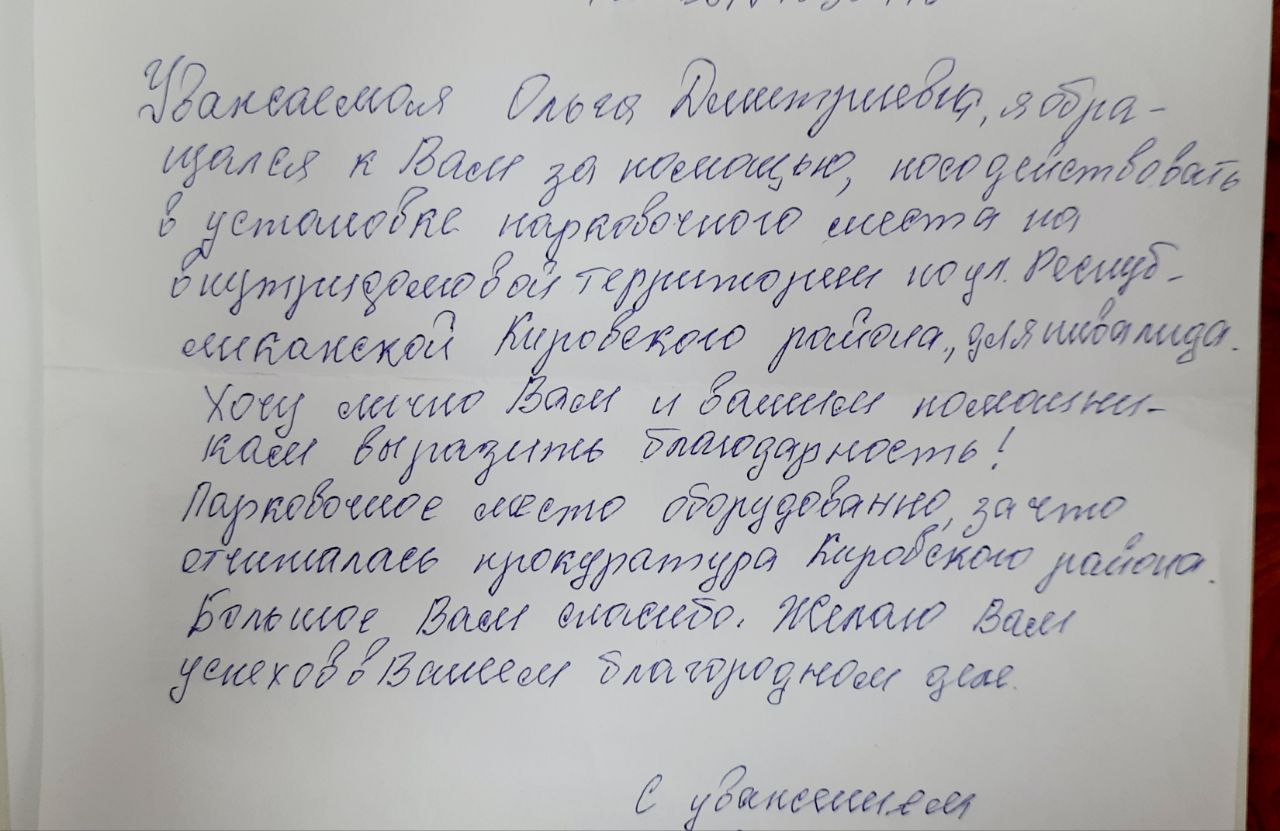 Уважаемая Ольга Дмитриевна, я обра-
щался к Вам за помощью, посодействовать
в установке парковочного места на
внутридомовой территории по ул. Респуб-
ликанской Кировского района, для инвалида.
Хочу лично Вам и вашим помощни-
кам выразить благодарность!
Парковочное место оборудованно, за что
отчиталась прокуратура Кировского района.
Большое Вам спасибо. Желаю Вам
успехов в Вашем благородном деле.
С уважением